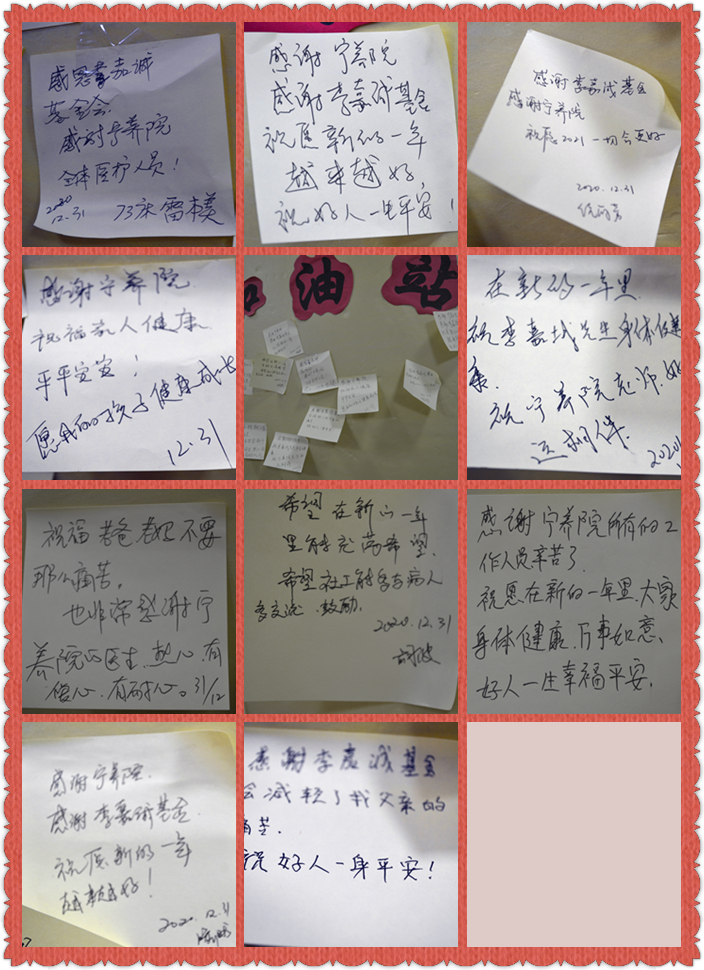 感恩李嘉诚
基金会
感谢宁养院
全体医护人员!
2020
12.31 73床 雷
感谢宁养院
感谢李嘉诚基金
祝愿新的一年
越来越好
祝好人一生平安!
感谢李嘉诚基金
感谢宁养院
祝愿2021一切会更好
2020.12.31
感谢宁养院
祝福家人健康
平平安安!
愿我的孩子健康成长
12.31
加油站
在新的一年里
祝李嘉诚先生身体健
康.
祝宁养院 好
运相伴.
2020
祝福老爸老妈不要
那么痛苦.
也非常感谢宁
养院的医生.热心.有
爱心.有耐心。31/12
希望在新的一年
里能充满希望.
希望社工能多与病人
多交流.鼓励.
2020.12.31
感谢宁养院所有的工
作人员辛苦了.
祝愿在新的一年里.大家
身体健康.万事如意、
好人一生幸福平安.
感谢宁养院.
感谢李嘉诚基金.
祝愿新的一年
越来越好!
2020.12.31
感谢李嘉诚基金
会减轻了我父亲的
痛苦.
祝好人一身平安!